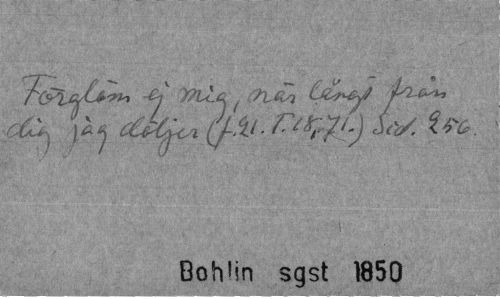 Förglöm ej mig, när långt från
dig jag döljer (f.21. T.18,71.) Sid. 256.
Bohlin sgst 1850